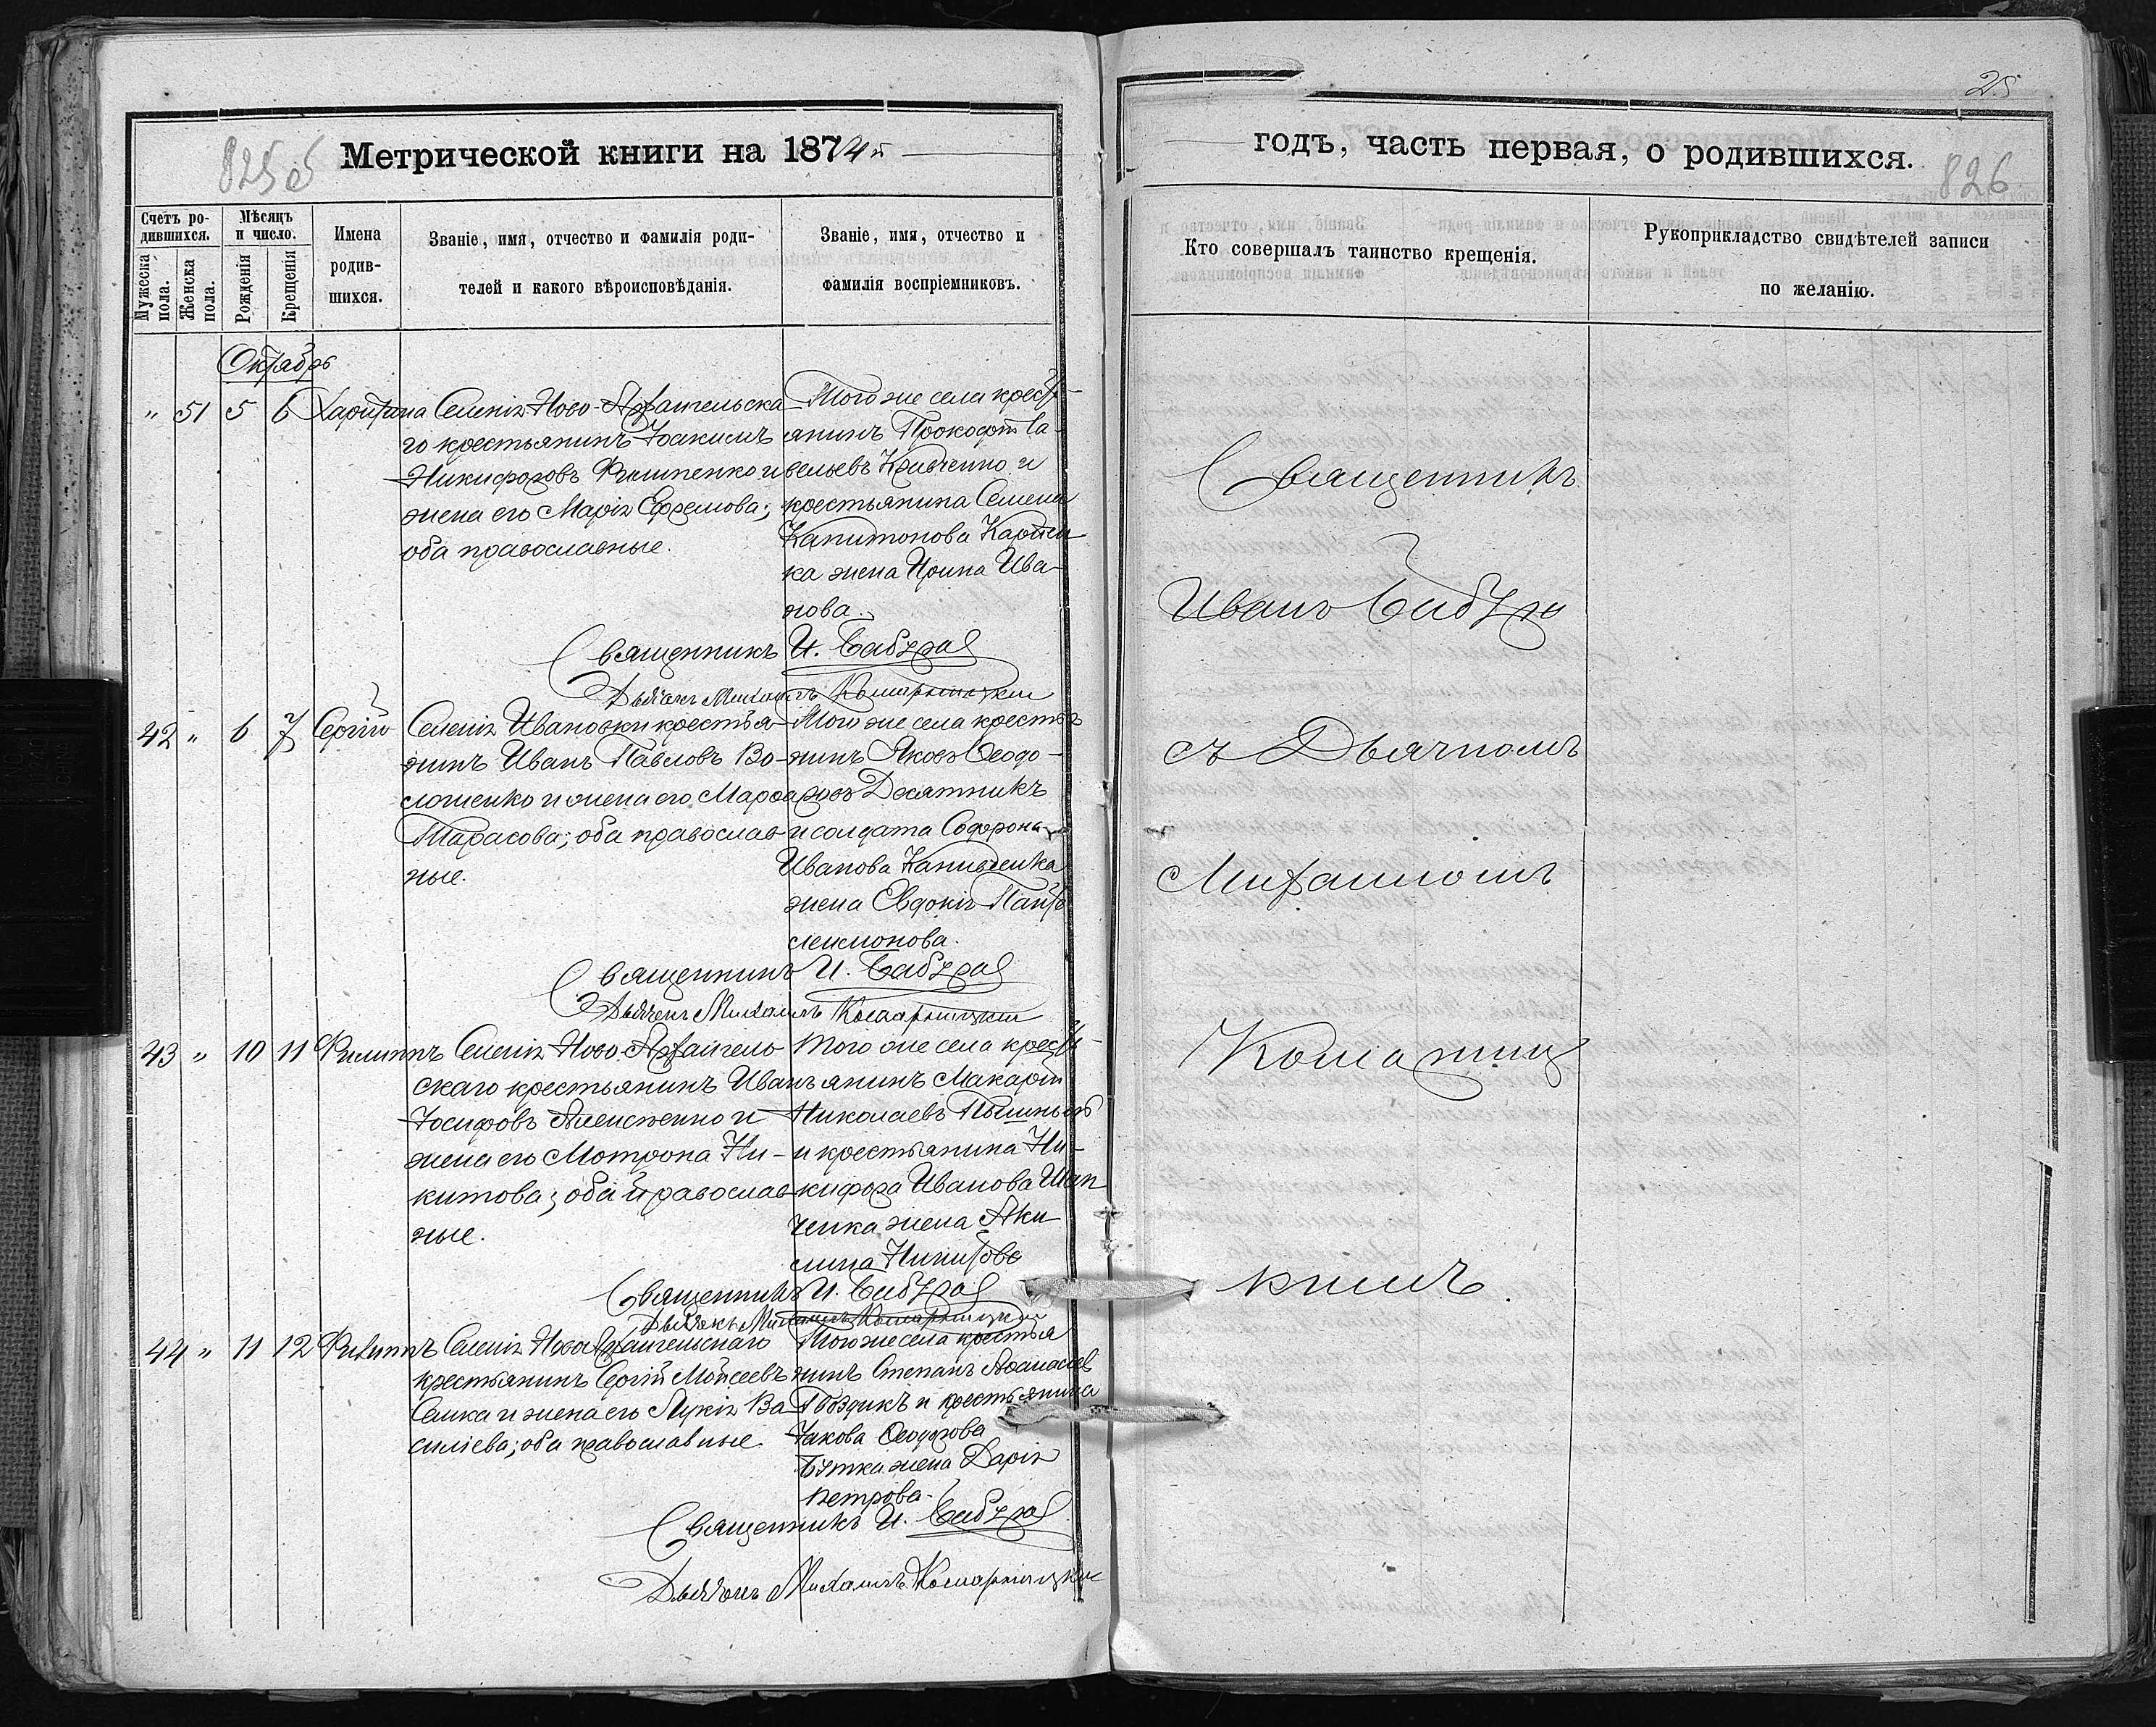 25
825 об
Метрической книги на 1874й
годъ, часть первая, о родившихся.
826
Счетъ ро-
дившихся.
Мужеска
пола.
Женска
пола.
Мѣсяцъ
и число.
Рожденія
Крещенія
Имена
родив-
шихся.
Званіе, имя, отчество и фамилія роди-
телей и какого вѣроисповѣданія.
Званіе, имя, отчество и
фамилія воспріемниковъ.
Кто совершалъ таинство крещенія.
Рукоприкладство свидѣтелей записи
по желанію.
Октябрь
" 51 5 6 Харитина
Селенія Ново-Архангельска-
го крестьянинъ Іоакимъ
Никифоровъ Филипенко и
жена его Марія Ефремова;
оба православные.
Того же села кресть-
янинъ Прокофій Са-
вельевъ Кравченко и
крестьянина Семена
Капитонова
ка жена Ирина Ива-
нова.
Священникъ И.
Дьячекъ Михаилъ
42 " 6 7 Сергій
Селенія Ивановки крестья-
нинъ Иванъ Павловъ Во-
лошенко и жена его Марфа
Тарасова; оба православ-
ные.
Того же села крестья
нинъ Яковъ Ѳеодо-
ровъ Десятникъ
и солдата Софрона
Иванова
жена Евдокія Панте
леимонова.
Священникъ И.
Дьячекъ Михаилъ
43 " 10 11 Филиппъ
Селенія Ново-Архангель
скаго крестьянинъ Иванъ
Іосифовъ Алексеенко и
жена его Мотрона Ни-
китова; оба православ
ные.
Того же села кресть-
янинъ Макарій
Николаевъ
и крестьянина Ни-
кифора Иванова Шап
ченка жена Аки
лина Никитова
Священникъ И.
Дьячекъ Михаилъ
44 " 11 12 Филиппъ
Селенія Ново Архангельскаго
крестьянинъ Сергій Мойсеевъ
Сашка и жена его Лукія Ва
силіева; оба православные
Того же села крестья
нинъ Степанъ Аѳанасіев
Гвоздикъ и крестьянина
Іакова Ѳеодорова
Бутка жена Дарія
Петрова.
Священникъ И.
Дьячекъ Михаилъ
Священникъ
Иванъ
съ Дьячкомъ
Михаиломъ
Комарниц
кимъ.